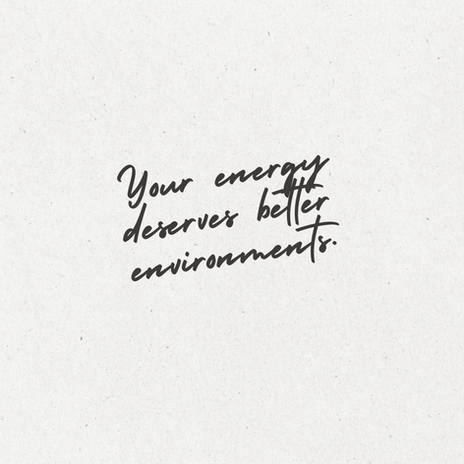 Your energy
deserves better
environments.